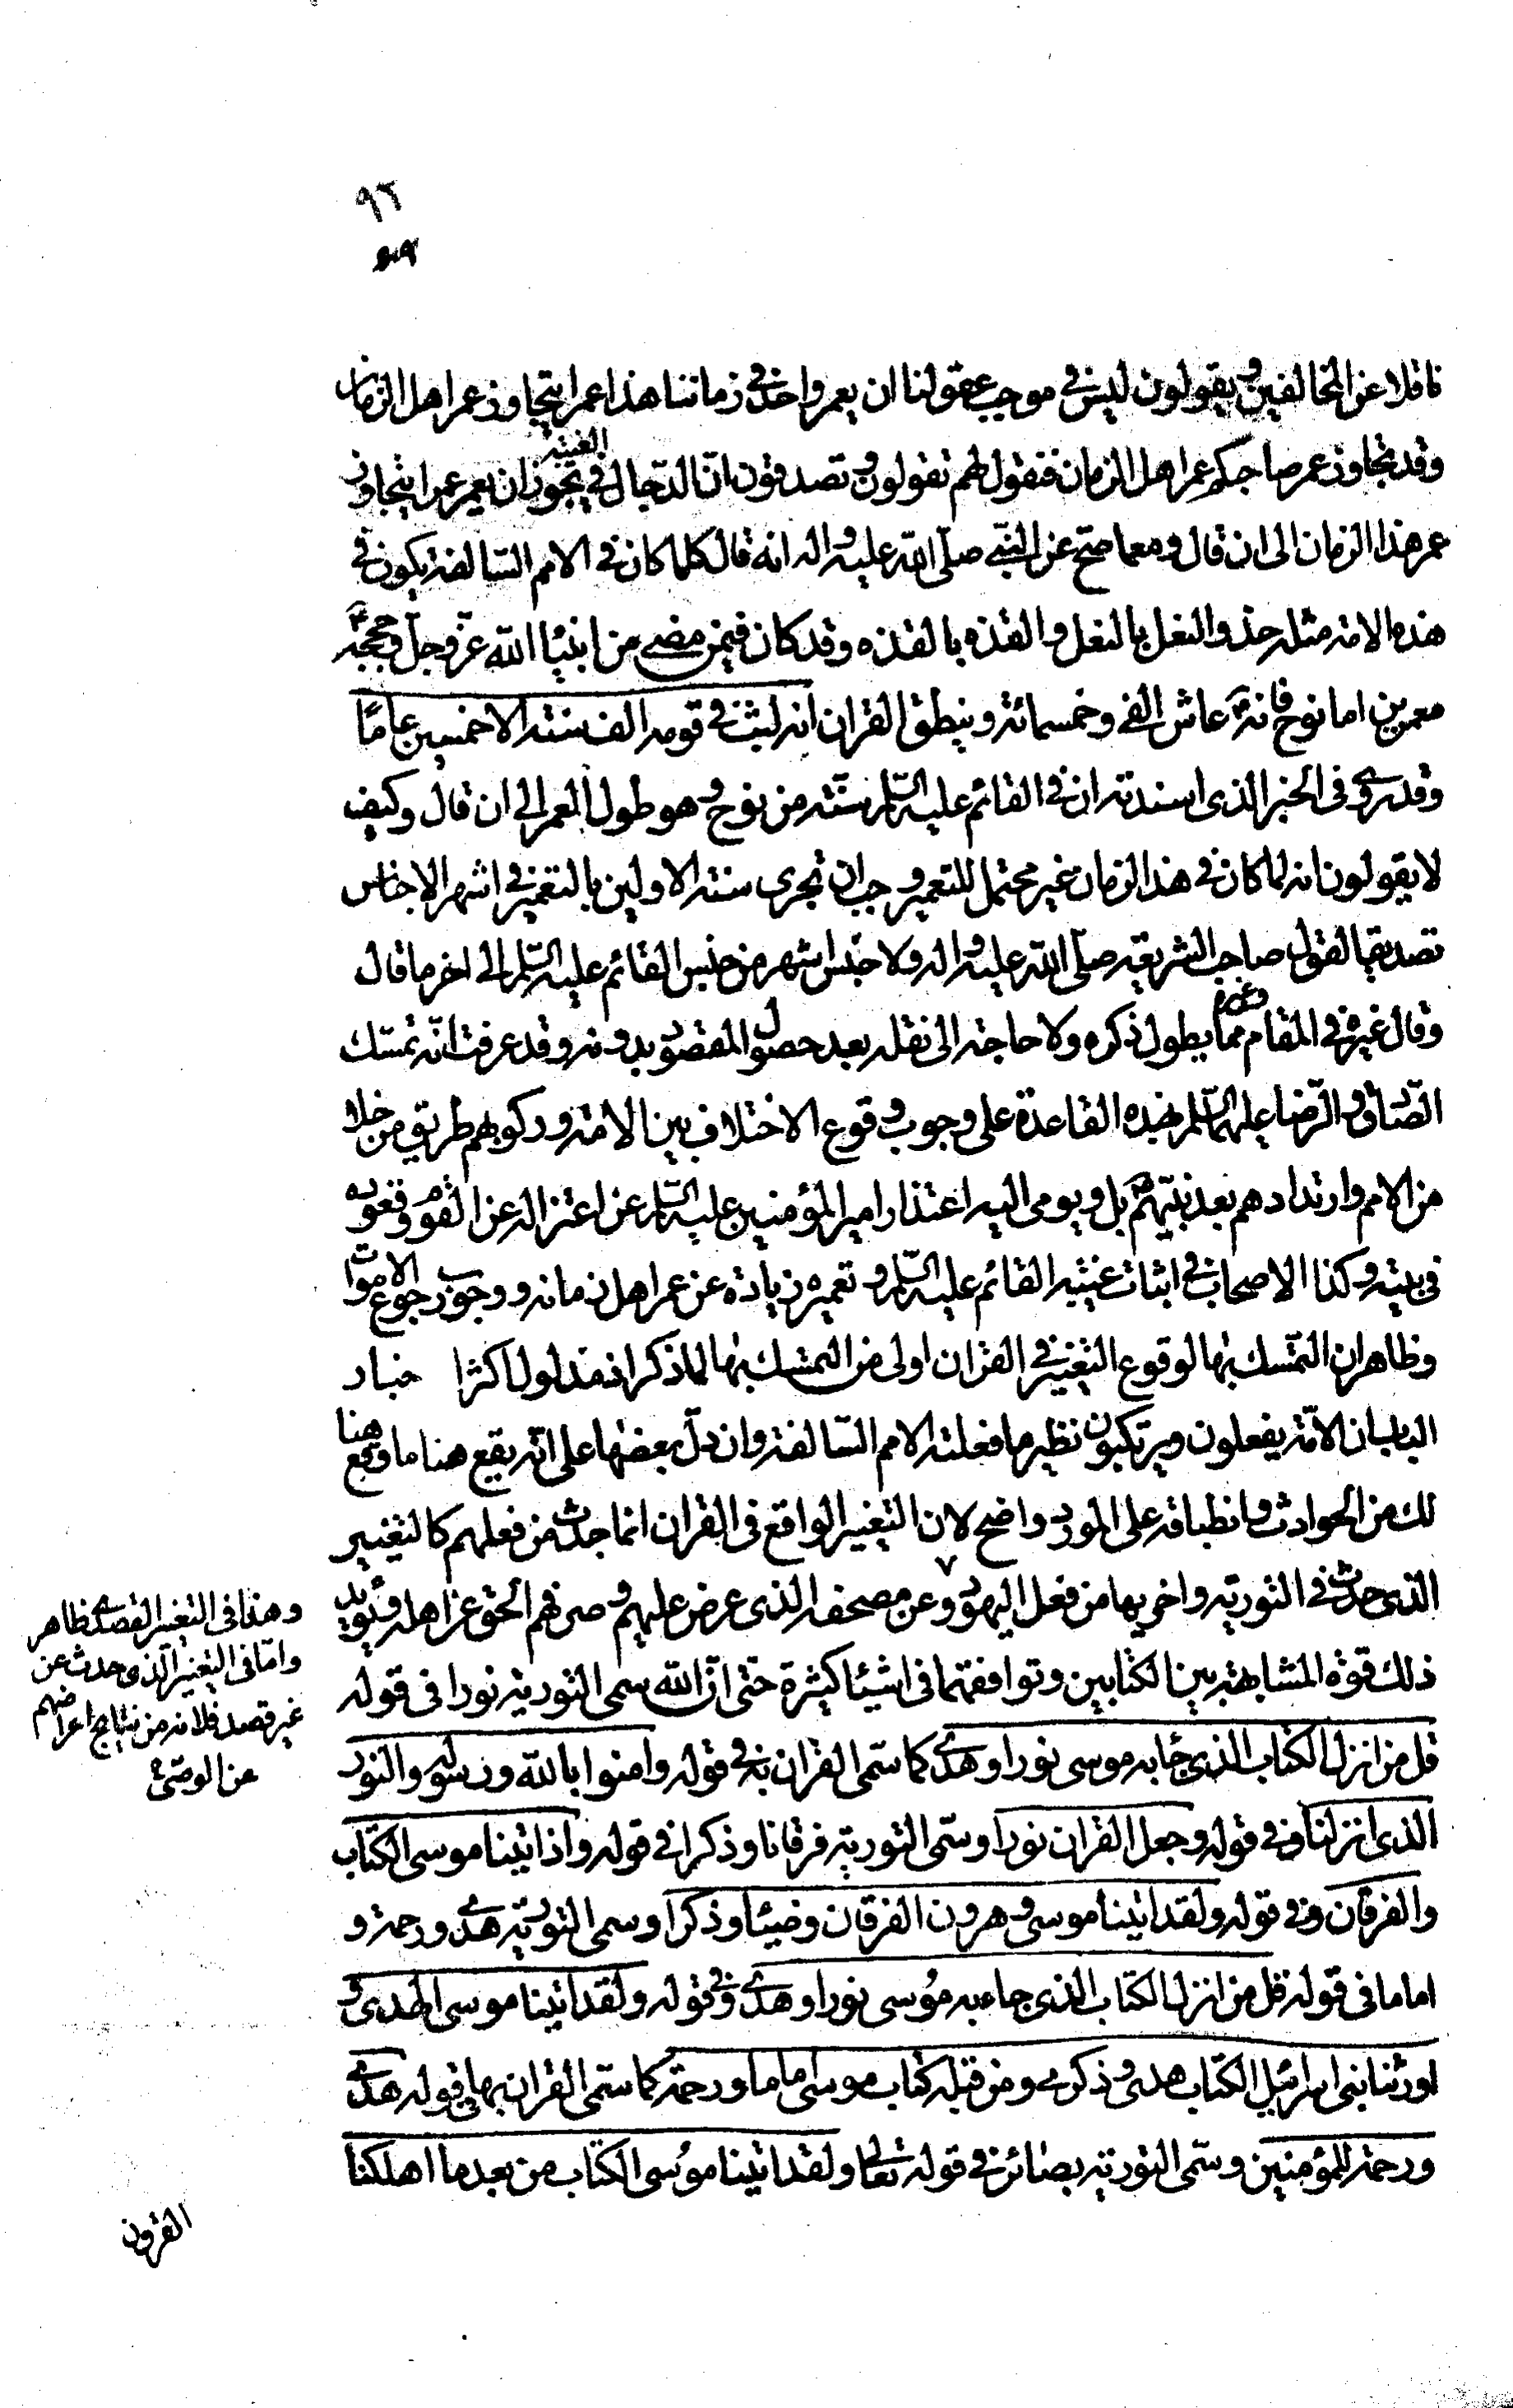 ٩٦
ناقلا عن المخالفين ويقولون ليس في موجب عقولنا ان يعمر واحد في زماننا هذا عمرا يتجاوز عمر اهل الزمان
وقد تجاوز عمر صاحبكم عمر اهل الزمان فنقول لهم تقولون وتصدقون ان الدجال في الغيبة يجوز ان يعمر عمرا يتجاوز
عمر هذا الزمان الى ان قال ومعما صح عن النبي صلى الله عليه واله انه قال كلما كان في الامم السالفة يكون في
هذه الامة مثله حذو النعل بالنعل والقذه بالقذه وقد كان فيمن مضى من انبيا الله عز وجل وحججه
معمرين اما نوح فانه عاش الفي وخمسمائة وينطق القران انه لبث في قومه الف سنة الا خمسين عاما
وقد روي في الخبر الذي اسندته ان في القائم عليه السلم سنة من نوح وهو طول العمر الى ان قال وكيف
لا يقولون انه لما كان في هذا الزمان غير محتمل للتعمير وجب ان تجري سنة الاولين بالتعمير في اشهر الاجناس
تصديقا لقول صاحب الشريعة صلى الله عليه واله ولا جنس اشهر من جنس القائم عليه السلم الى اخر ما قال
وقال غيره في المقام وغيره مما يطول ذكره ولا حاجة الى نقله بعد حصول المقصود بدونه وقد عرفت انه تمسك
الصادق والرضا عليهما السلم بهذه القاعدة على وجوب وقوع الاختلاف بين الامة وركوبهم طريق من خلا
من الامم وارتدادهم بعد نبيهم بل ويومى اليه اعتذار امير المؤمنين عليه السلم عن اعتزاله عن القوم وقعوده
في بيته وكذا الاصحاب في اثبات غيبة القائم عليه السلم وتعميره زيادة عن عمر اهل زمانه ووجوب رجوع الاموات
وظاهر ان التمسك بها لوقوع التغيير في القران اولى من التمسك بها لما ذكر اذ مدلول اكثر ا خبار
الباب ان الامة يفعلون ويرتكبون نظير ما فعلته الامم السالفة وان دل بعضها على انه يقع هنا ما وقع هنا
لك من الحوادث وانطباقه على المورد واضح لان التغيير الواقع في القران انما حدث من فعلهم كالتغيير
الذي حدث في التورية واخويها من فعل اليهود وعن مصحفه الذي عرض عليهم وصرفهم الحق عن اهله ويؤيد
ذلك قوة المشابهة بين الكتابين وتوافقهما في اشيئا كثيرة حتى ان الله سمى التورية نورا في قوله
قل من انزل الكتاب الذي جا به موسى نورا وهدى كما سمى القران به في قوله وامنوا بالله ورسوله والنور
الذي انزلنا وفي قوله وجعل القران نورا وسمى التورية فرقانا وذكرا في قوله واذ اتينا موسى الكتاب
والفرقان وفي قوله ولقد اتينا موسى وهرون الفرقان وضيئا وذكرا وسمى التورية هدى ورحمة و
اماما في قوله قل من انزل الكتاب الذي جاء به موسى نورا وهدى وفي قوله ولقد اتينا موسى الهدى و
اورثنا بني اسرائيل الكتاب هدى وذكرى ومن قبله كتاب موسى اماما ورحمة كما سمى القران بها في قوله هدى
ورحمة للمؤمنين وسمى التورية بصائر في قوله تعالى ولقد اتينا موسى الكتاب من بعد ما اهلكنا
القرون
وهذا في التغيير القصدى ظاهر
واما في التغيير الذي حدث عن
غير قصد فلانه من نتايج اعراضهم
عن الوصي